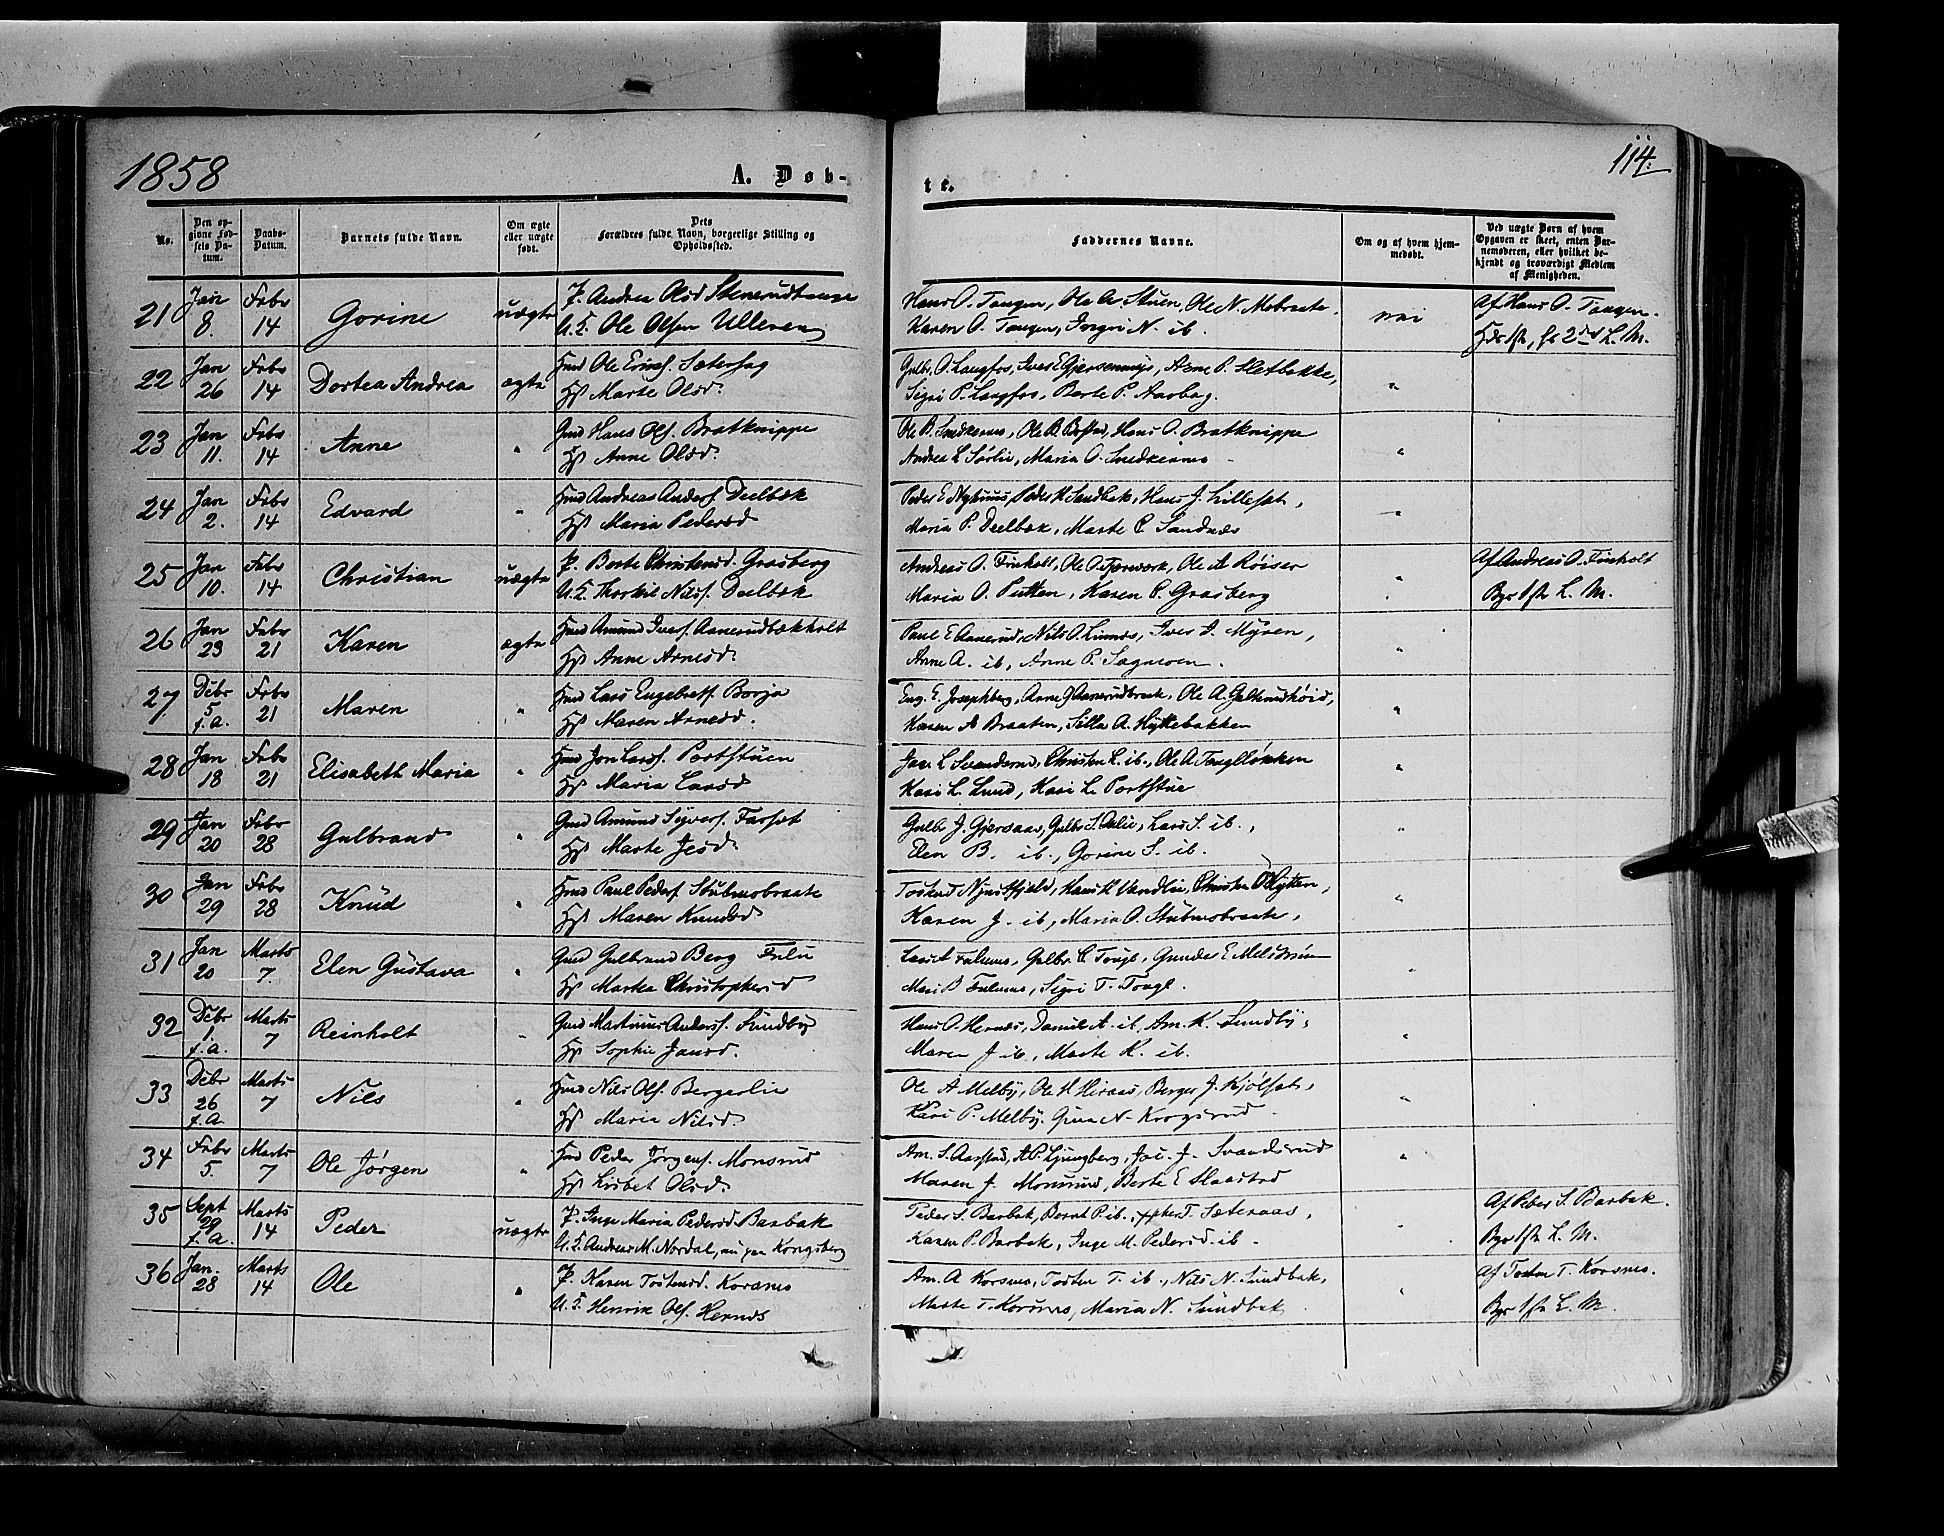 1858
A. Døb-
te.
114.
No.
Den op-
givne Fød-
sels Da-
tum.
Daabs-
Datum.
Barnets fulde Navn.
Om ægte
eller uægte
født.
Dets
Forældres fulde Navn, borgerlige Stilling og
Opholdssted.
Faddernes Navne.
Om og af hvem hjem-
medøbt.
Ved uægte Børn af hvem
Opgaven er skeet, enten Bar-
nemoderen, eller hvilket be-
kjendt og troværdigt Medlem
af Menigheden.
21 Jan 8. Febr 14 Gorine uægte
P. Andrea Olsd
U. F. Ole Olsen Ulleren
Hans O. Tangen, Ole A. Stuen, Ole N. Mobraate.
Karen O. Tangen, N. ib.
nei
Af Hans O. Tangen.
L. M.
22 Jan 26 Febr 14 Dortea Andrea ægte
Hmd Ole
Hst Marte Olsd.
Gulbr. O. Langfos, Arne P. Sletbakke,
Sigri P. Langfos, Berte P. Aarbog.
"
23 Jan 11. Febr 14 Anne "
Gmd Hans Ols. Bratknippe
Hst Anne Olsd.
Ole B. Hans O. Bratknippe
Andrea L. Sørlie, Maria O.
"
24 Jan 2. Febr 14 Edvard "
Hmd Andreas Anders. Deelbæk
Hst Maria Pedersd
Peder H. Sundbæk, Hans J. Lilleset,
Maria P. Deelbæk, Marte P. Sandnæs
"
25 Jan 10. Febr 14 Christian uægte
P. Berte Christensd. Grasberg
U. F. Thorkil Nils. Deelbæk
Andreas O. Finholt, Ole O. Ole A Røiser
Maria O. Putten, Karen P. Grasberg
"
Af Andreas O. Finholt
Bgr 1ste L. M.
26 Jan 23 Febr 21 Karen ægte
Hmd Amund Ivers. Aanerudbækholt
Hst Anne Arnesd.
Paul E Aanerud, Nils O. Iver I. Myren,
Anne A. ib, Anne P.
"
27 Debr 5 f. A. Febr 21 Maren "
Hmd Lars Engebrets. Borja
Hst Maren Arnesd.
Eng. E. Ole A.
Karen A Braaten, Silla A. Hyttebakken
"
28 Jan 18 Febr 21 Elisabeth Maria "
Hmd Jon Lars. Portstuen
Hst Maria Larsd
Christen L. ib., Ole A
Kari L. Lund, Kari L. Portstue
"
29 Jan 20 Febr 28 Gulbrand "
Gmd Amund Syvers. Farset
Hst Marte Jensd.
Gulbr J. Gjersaas, Gulbr S. Lars S. ib.,
Elen B. ib., Gorine S. ib.
"
30 Jan 29 Febr 28 Knud "
Hmd Paul Peders. Stubmobraate
Hst Maren Knudsd
Christen O Hytten,
Karen J. ib, Maria O. Stubmobraate,
"
31 Jan 20 Marts 7. Elen Gustava "
Gmd Gulbrand Berg
Hst Martea Christophersd
Gunder E
Mari B Sigri T.
"
32 Debr 1 f. A. Marts 7 Reinholt "
Gmd Martinus Anders. Sundby
Hst Sophie Jansd.
Hans O. Hernes, Daniel A. ib, Am. K. Sundby,
Maren J ib, Marte K. ib.
"
33 Debr 26 f. A. Marts 7 Nils "
Hmd Nils Ols. Bergerlie
Hst Maria Nilsd.
Ole A Melby, Ole H Heraas, Berger J. Kjølset,
Kari P. Melby, N. Krogsrud
"
34 Febr 5. Marts 7 Ole Jørgen "
Hmd Peder Jørgens. Monsrud
Hst Lisbet Olsd.
Am. S. Aarstad, A. P. Ljungberg, J. Svandsrud
Maren J. Monsrud, Berte E
"
35 Sept 29 f. A. Marts 14 Peder uægte
P. Inge Maria Pedersd Barbak
U. F. Andreas M. Nordal, nu paa Kongsberg
Peder S. Barbak, Bernt P. ib., T. Sæteraas,
Karen P. Barbak, Inge M. Pedersd. ib.
"
Af Peder S. Barbak.
Bgr 1ste L. M.
36 Jan. 28 Marts 14 Ole "
P. Karen Tostensd. Korsmo
U. F. Henrik Ols. Hernes
Am. A Korsmo, Tosten T. ib., Nils N. Sundbak,
Marte T. Korsmo, Maria N. Sundbak
"
af Tosten T. Korsmo.
Bgr 1ste L. M.